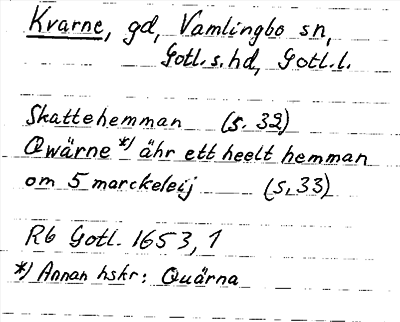 Kvarne, gd, Vamlingbo sn,
Gotl. s. hd, Gotl. l.
Skattehemman (s. 32)
Qwärne *) ähr ett heelt hemman
om 5 marckeleij (s. 33)
Rb Gotl. 1653, 1
*) Annan hskr: Quärna